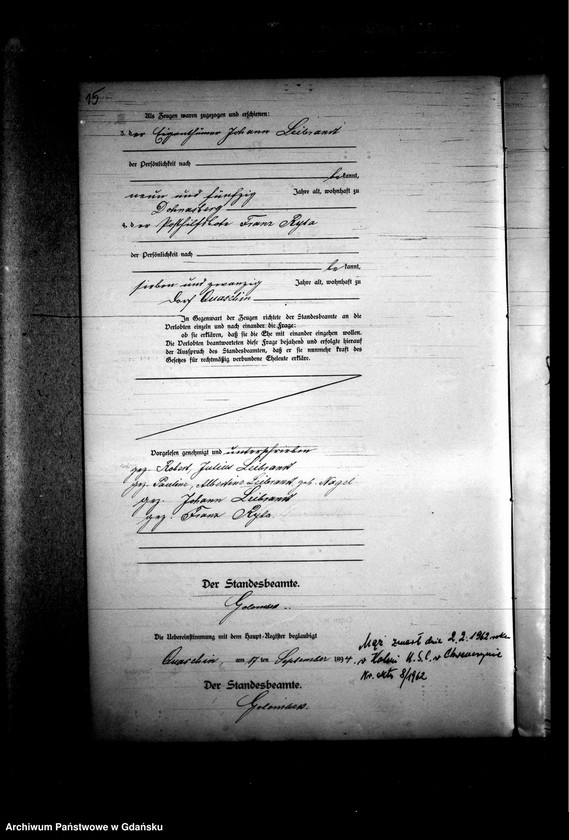 15
Als Zeugen waren zugezogen und erschienen:
3. der Eigenthümer Johann Leibrandt
der Persönlichkeit nach
bekannt,
neun und fünfzig Jahre alt, wohnhaft zu
Dohnasberg
4. der Posthilfsbote Franz Ryba
der Persönlichkeit nach
bekannt,
sieben und zwanzig Jahre alt, wohnhaft zu
Dorf Quaschin
In Gegenwart der Zeugen richtete der Standesbeamte an die
Verlobten einzeln und nach einander die Frage:
ob sie erklären, daß sie die Ehe mit einander eingehen wollen.
Die Verlobten beantworteten diese Frage bejahend und erfolgte hierauf
der Ausspruch des Standesbeamten, daß er sie nunmehr kraft des
Gesetzes für rechtmäßig verbundene Eheleute erkläre.
Vorgelesen, genehmigt und unterschrieben
gez. Robert Julius Leibrandt
gez. Pauline, Albertine Leibrandt, geb. Nagel
gez. Johann Leibrandt
gez. Franz Ryba.
Der Standesbeamte.
Die Uebereinstimmung mit dem Haupt-Register beglaubigt
Quaschin, am 17 ten September 1894.
Der Standesbeamte.
Mąż zmarł dnia 2.2.1962 roku
w U.S.C. w
Nr. aktu 8/1962
Archiwum Państwowe w Gdańsku